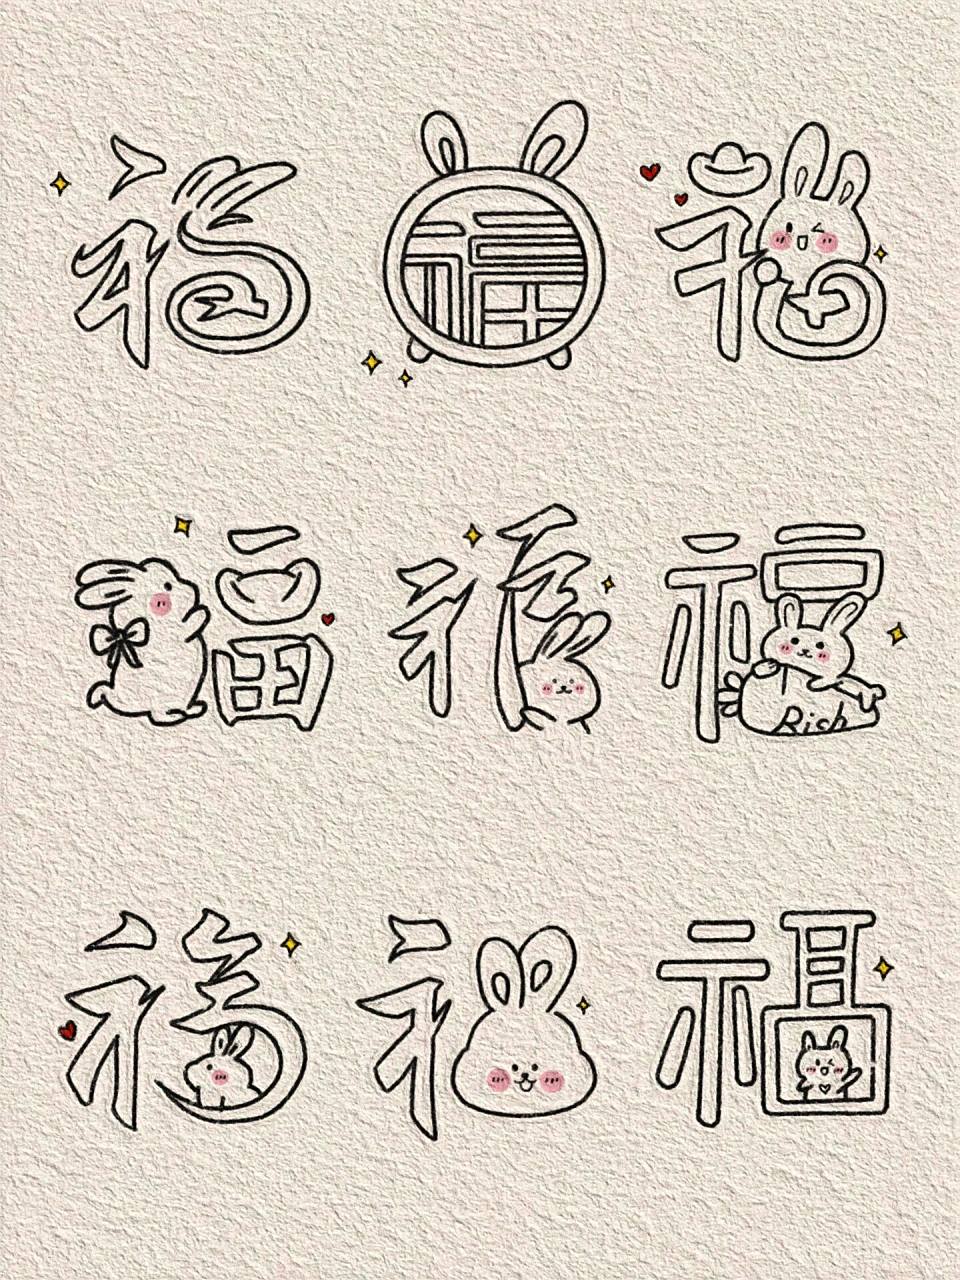 福 福 福
福 福 福
Rich
福 福 福